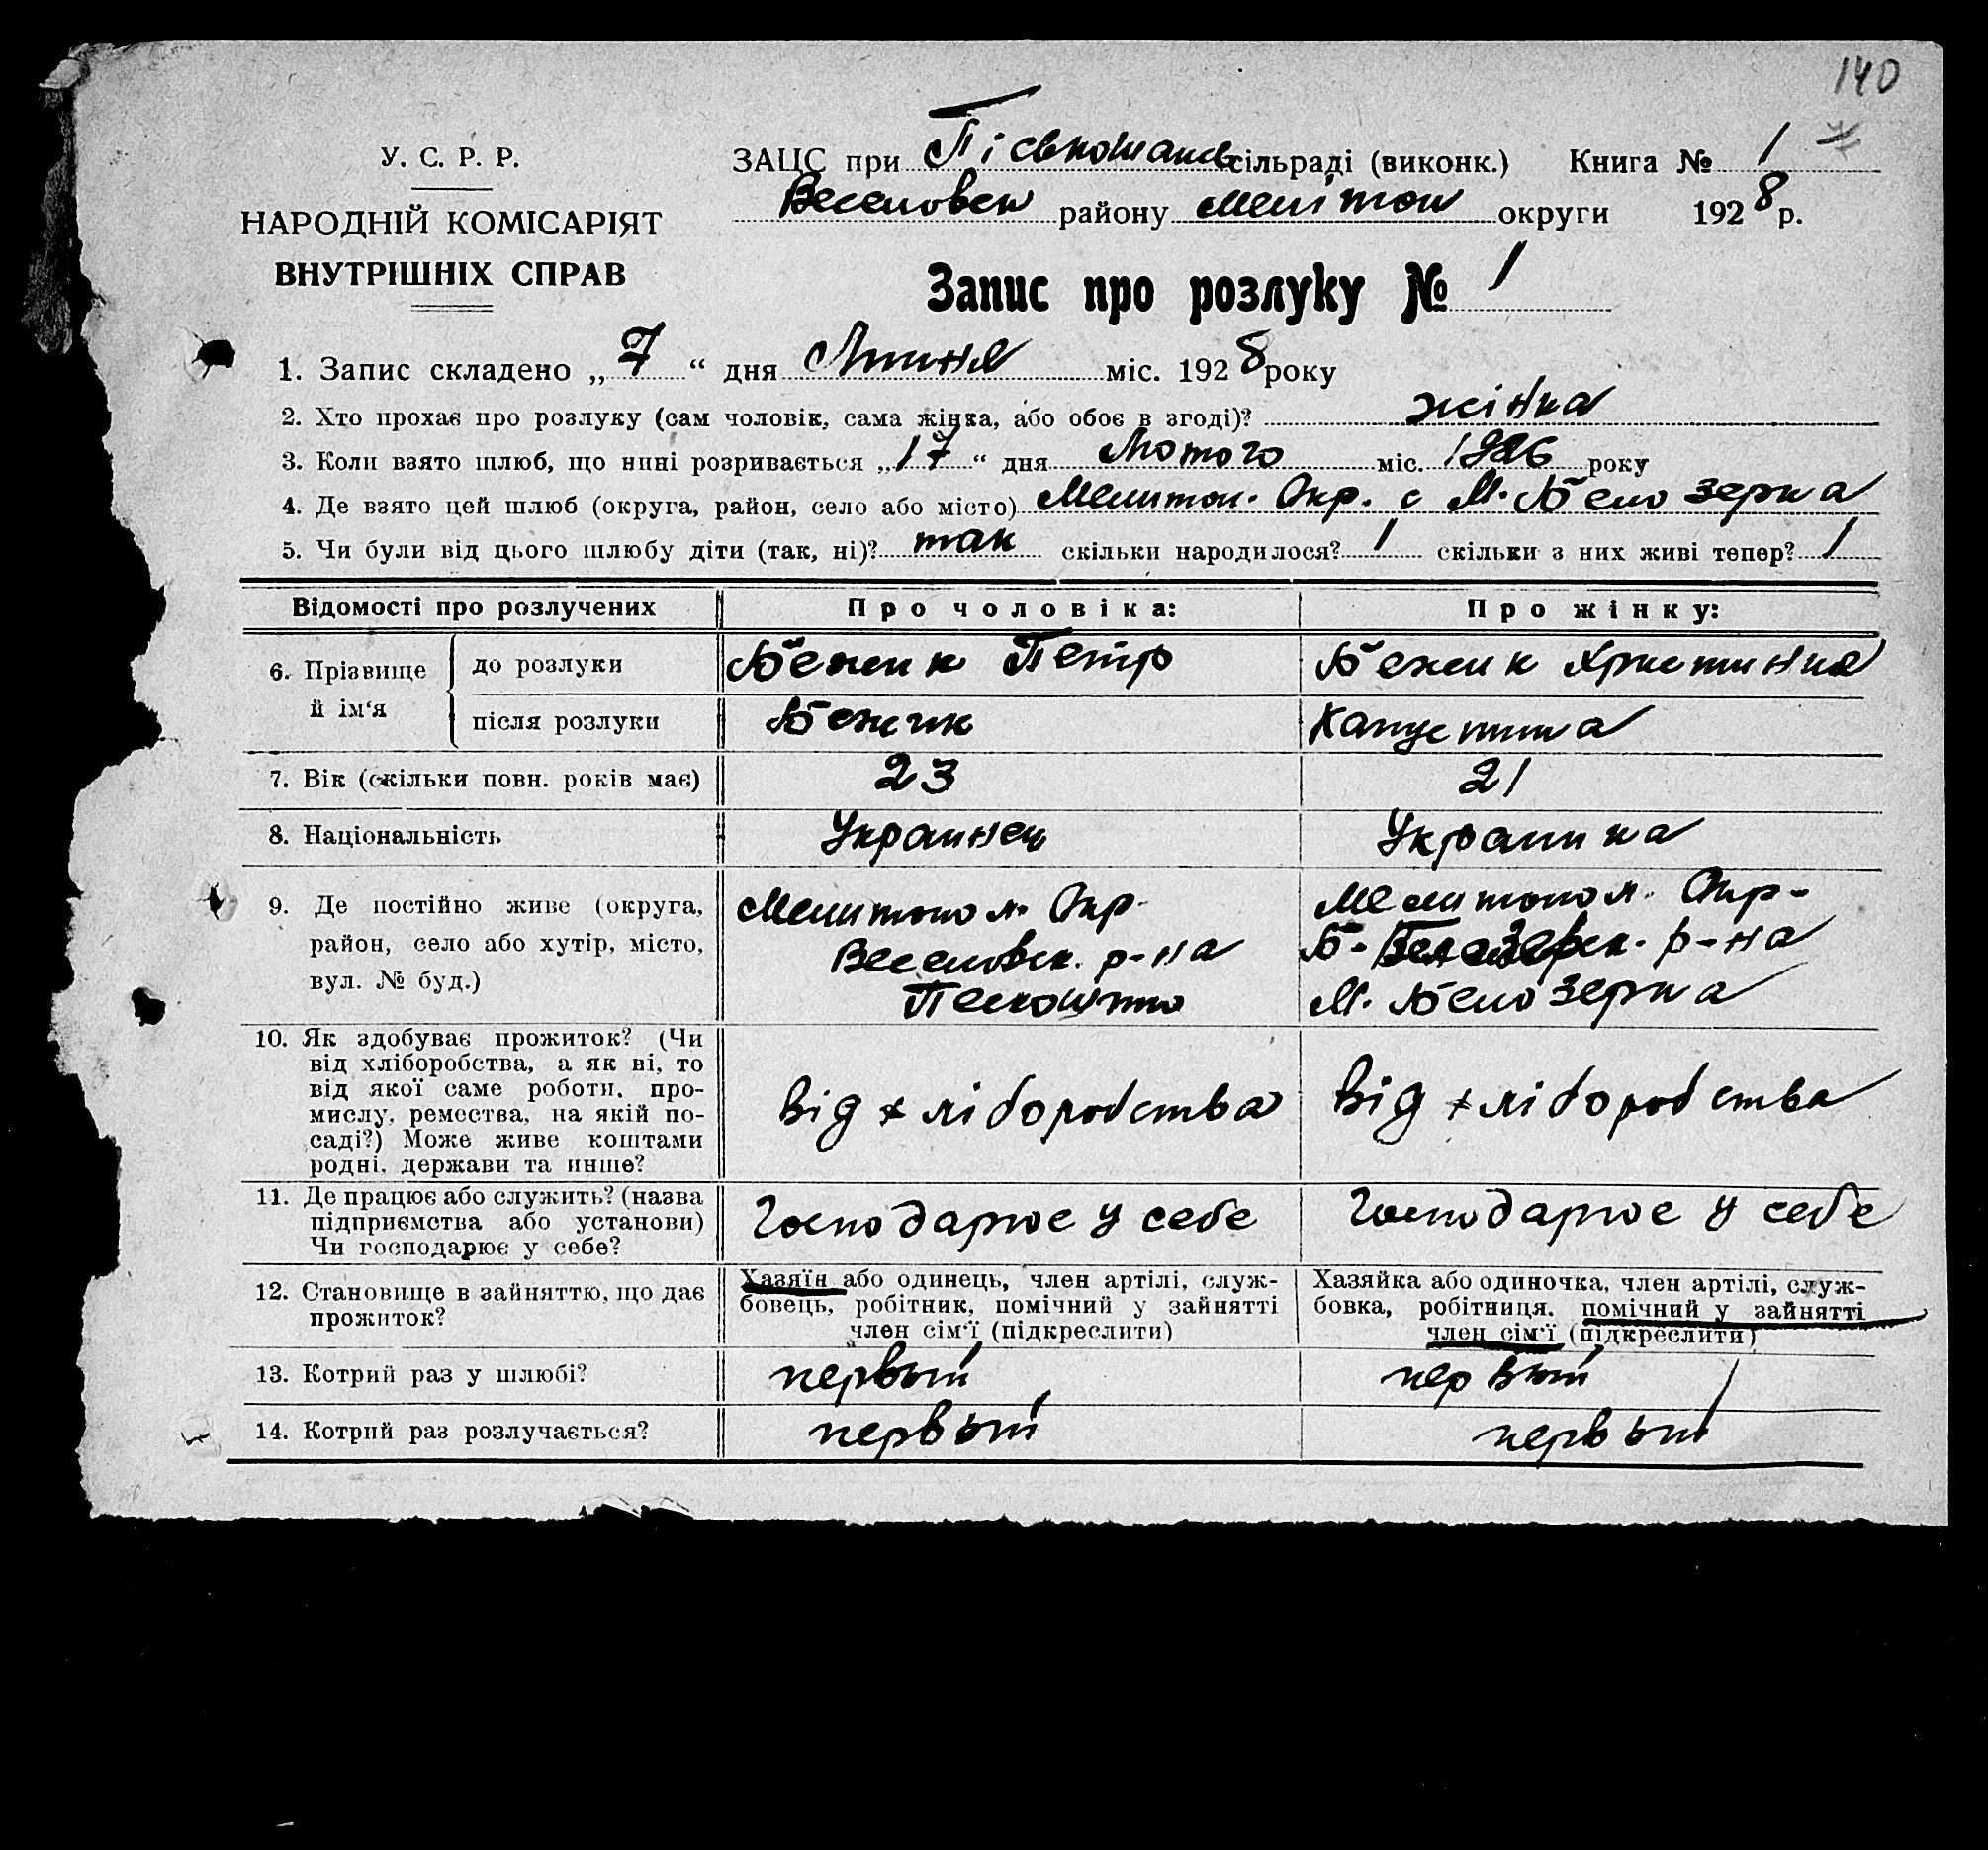 140
У. С. Р. Р.
НАРОДНІЙ КОМІСАРІЯТ
ВНУТРІШНІХ СПРАВ
ЗАЦС при Піськошинс сільраді (виконк.) Книга № 1
Веселовськ району Мелітоп округи 1928 р.
Запис про розлуку № 1
1. Запис складено „ 7 “ дня Липня міс. 1928 року
2. Хто прохає про розлуку (сам чоловік, сама жінка, або обоє в згоді)? жінка
3. Коли взято шлюб, що нині розривається „ 17 “ дня Лютого міс. 1926 року
4. Де взято цей шлюб (округа, район, село або місто) Мелитоп. Окр. с М. Белозерка
5. Чи були від цього шлюбу діти (так, ні)? так скільки народилося? 1 скільки з них живі тепер? 1
Відомості про розлучених Про чоловіка: Про жінку:
6. Прізвище й ім‘я
до розлуки Бежик Петр Бежик Христиния
після розлуки Бежик Капустина
7. Вік (скільки повн. років має) 23 21
8. Національність Украинец Украинка
9. Де постійно живе (округа,
район, село або хутір, місто,
вул. № буд.)
Мелитопол. Окр.
Веселовск. р-на
Мелитопол. Окр-
Б-Белозерск. р-на
М. Белозерка
10. Як здобуває прожиток? (Чи
від хліборобства, а як ні, то
від якої саме роботи, про-
мислу, ремества, на якій по-
саді?) Може живе коштами
родні, держави та инше?
Від хліборобства Від хліборобства
11. Де працює або служить? (назва
підприємства або установи)
Чи господарює у себе?
Господарює у себе Господарює у себе
12. Становище в зайняттю, що дає
прожиток?
Хазяїн або одинець, член артілі, служ-
бовець, робітник, помічний у зайнятті
член сім‘ї (підкреслити)
Хазяйка або одиночка, член артілі, служ-
бовка, робітниця, помічний у зайнятті
член сім‘ї (підкреслити)
13. Котрий раз у шлюбі? первый первый
14. Котрий раз розлучається? первый первый